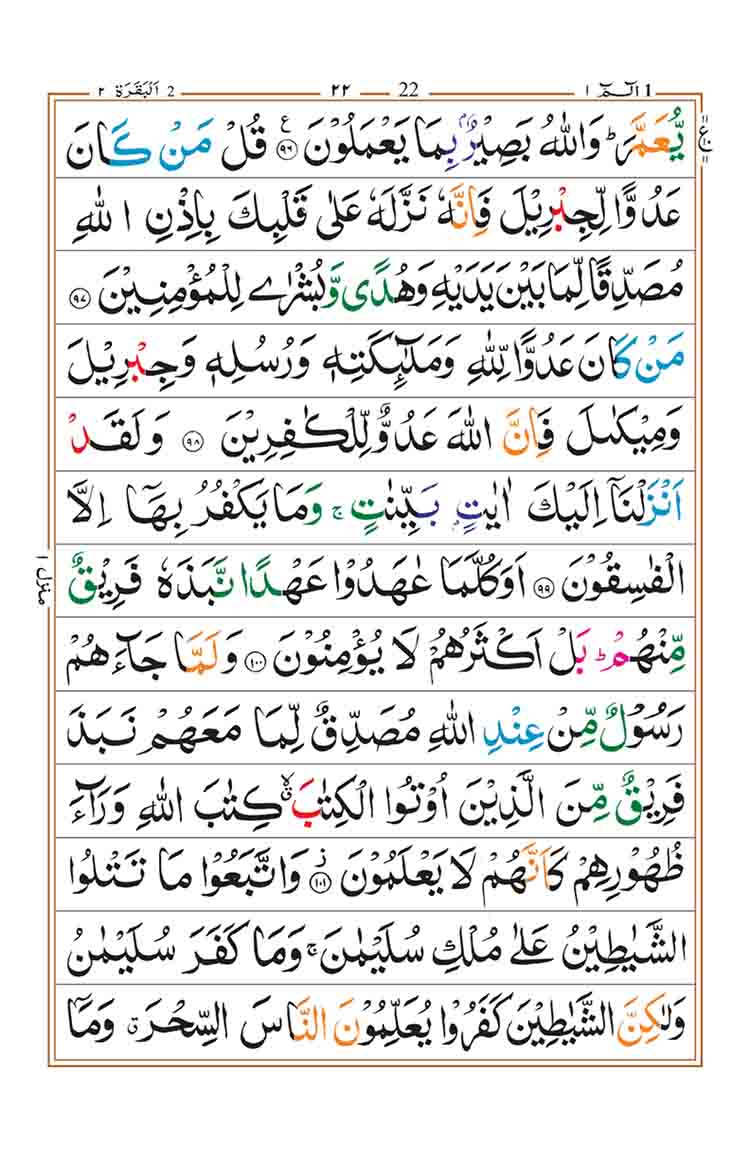 1 الٓـمّٓ ١ 22 ٢٢ 2 اَلْبَقَرَة ٢
يُّعَمَّرَ ؕ وَاللّٰهُ بَصِيْرٌۢ بِمَا يَعْمَلُوْنَ ۝۹۶ ع قُلْ مَنْ كَانَ
ع
عَدُوًّا لِّجِبْرِيْلَ فَاِنَّهٗ نَزَّلَهٗ عَلٰى قَلْبِكَ بِاِذْنِ اللّٰهِ
مُصَدِّقًا لِّمَا بَيْنَ يَدَيْهِ وَهُدًى وَّبُشْرٰى لِلْمُؤْمِنِيْنَ ۝۹۷
مَنْ كَانَ عَدُوًّا لِّلّٰهِ وَمَلٰٓئِكَتِهٖ وَرُسُلِهٖ وَجِبْرِيْلَ
وَمِيْكٰىلَ فَاِنَّ اللّٰهَ عَدُوٌّ لِّلْكٰفِرِيْنَ ۝۹۸ وَلَقَدْ
اَنْزَلْنَاۤ اِلَيْكَ اٰيٰتٍۭ بَيِّنٰتٍ ۚ وَمَا يَكْفُرُ بِهَاۤ اِلَّا
الْفٰسِقُوْنَ ۝۹۹ اَوَكُلَّمَا عٰهَدُوْا عَهْدًا نَّبَذَهٗ فَرِيْقٌ
منزل ١
مِّنْهُمْ ؕ بَلْ اَكْثَرُهُمْ لَا يُؤْمِنُوْنَ ۝۱۰۰ وَلَمَّا جَآءَهُمْ
رَسُوْلٌ مِّنْ عِنْدِ اللّٰهِ مُصَدِّقٌ لِّمَا مَعَهُمْ نَبَذَ
فَرِيْقٌ مِّنَ الَّذِيْنَ اُوْتُوا الْكِتٰبَ ۙۗ كِتٰبَ اللّٰهِ وَرَآءَ
ظُهُوْرِهِمْ كَاَنَّهُمْ لَا يَعْلَمُوْنَ ۝۱۰۱ ز وَاتَّبَعُوْا مَا تَتْلُوا
الشَّيٰطِيْنُ عَلٰى مُلْكِ سُلَيْمٰنَ ۚ وَمَا كَفَرَ سُلَيْمٰنُ
وَلٰكِنَّ الشَّيٰطِيْنَ كَفَرُوْا يُعَلِّمُوْنَ النَّاسَ السِّحْرَ ۗ وَمَاۤ